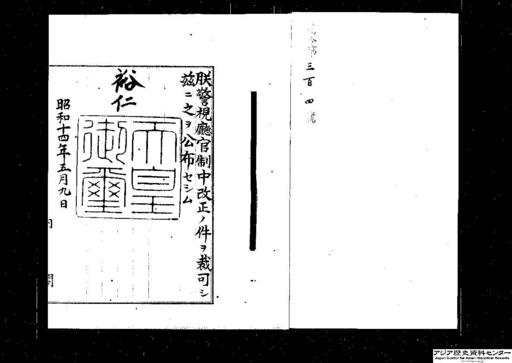 三百四
朕警視廳官制中改正ノ件ヲ裁可シ
玆ニ之ヲ公布セシム
裕仁
天皇御璽
昭和十四年五月九日
内閣
アジア歴史資料センター
Japan Center for Asian Historical Records